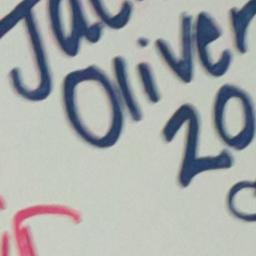 Jac
Oliver
20